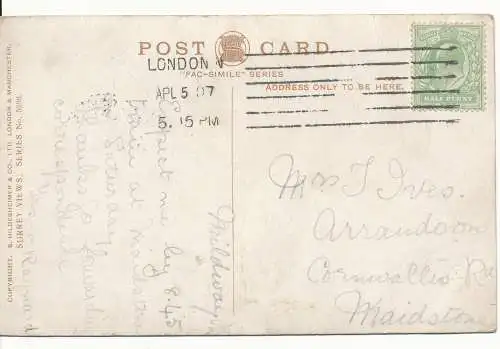 POST CARD.
"FAC-SIMILE" SERIES
ADDRESS ONLY TO BE HERE.
LONDON N
APL 5 07
5.15 PM
HALF PENNY
COPYRIGHT. S. HILDESHEIMER & CO., LTD. LONDON & MANCHESTER.
SURREY VIEWS. SERIES No.
Expect me by 8.45
train at Maidstone
on Saturday
Thanks for
Mrs T Ives.
Arrandoon
Cornwallis Rd
Maidstone